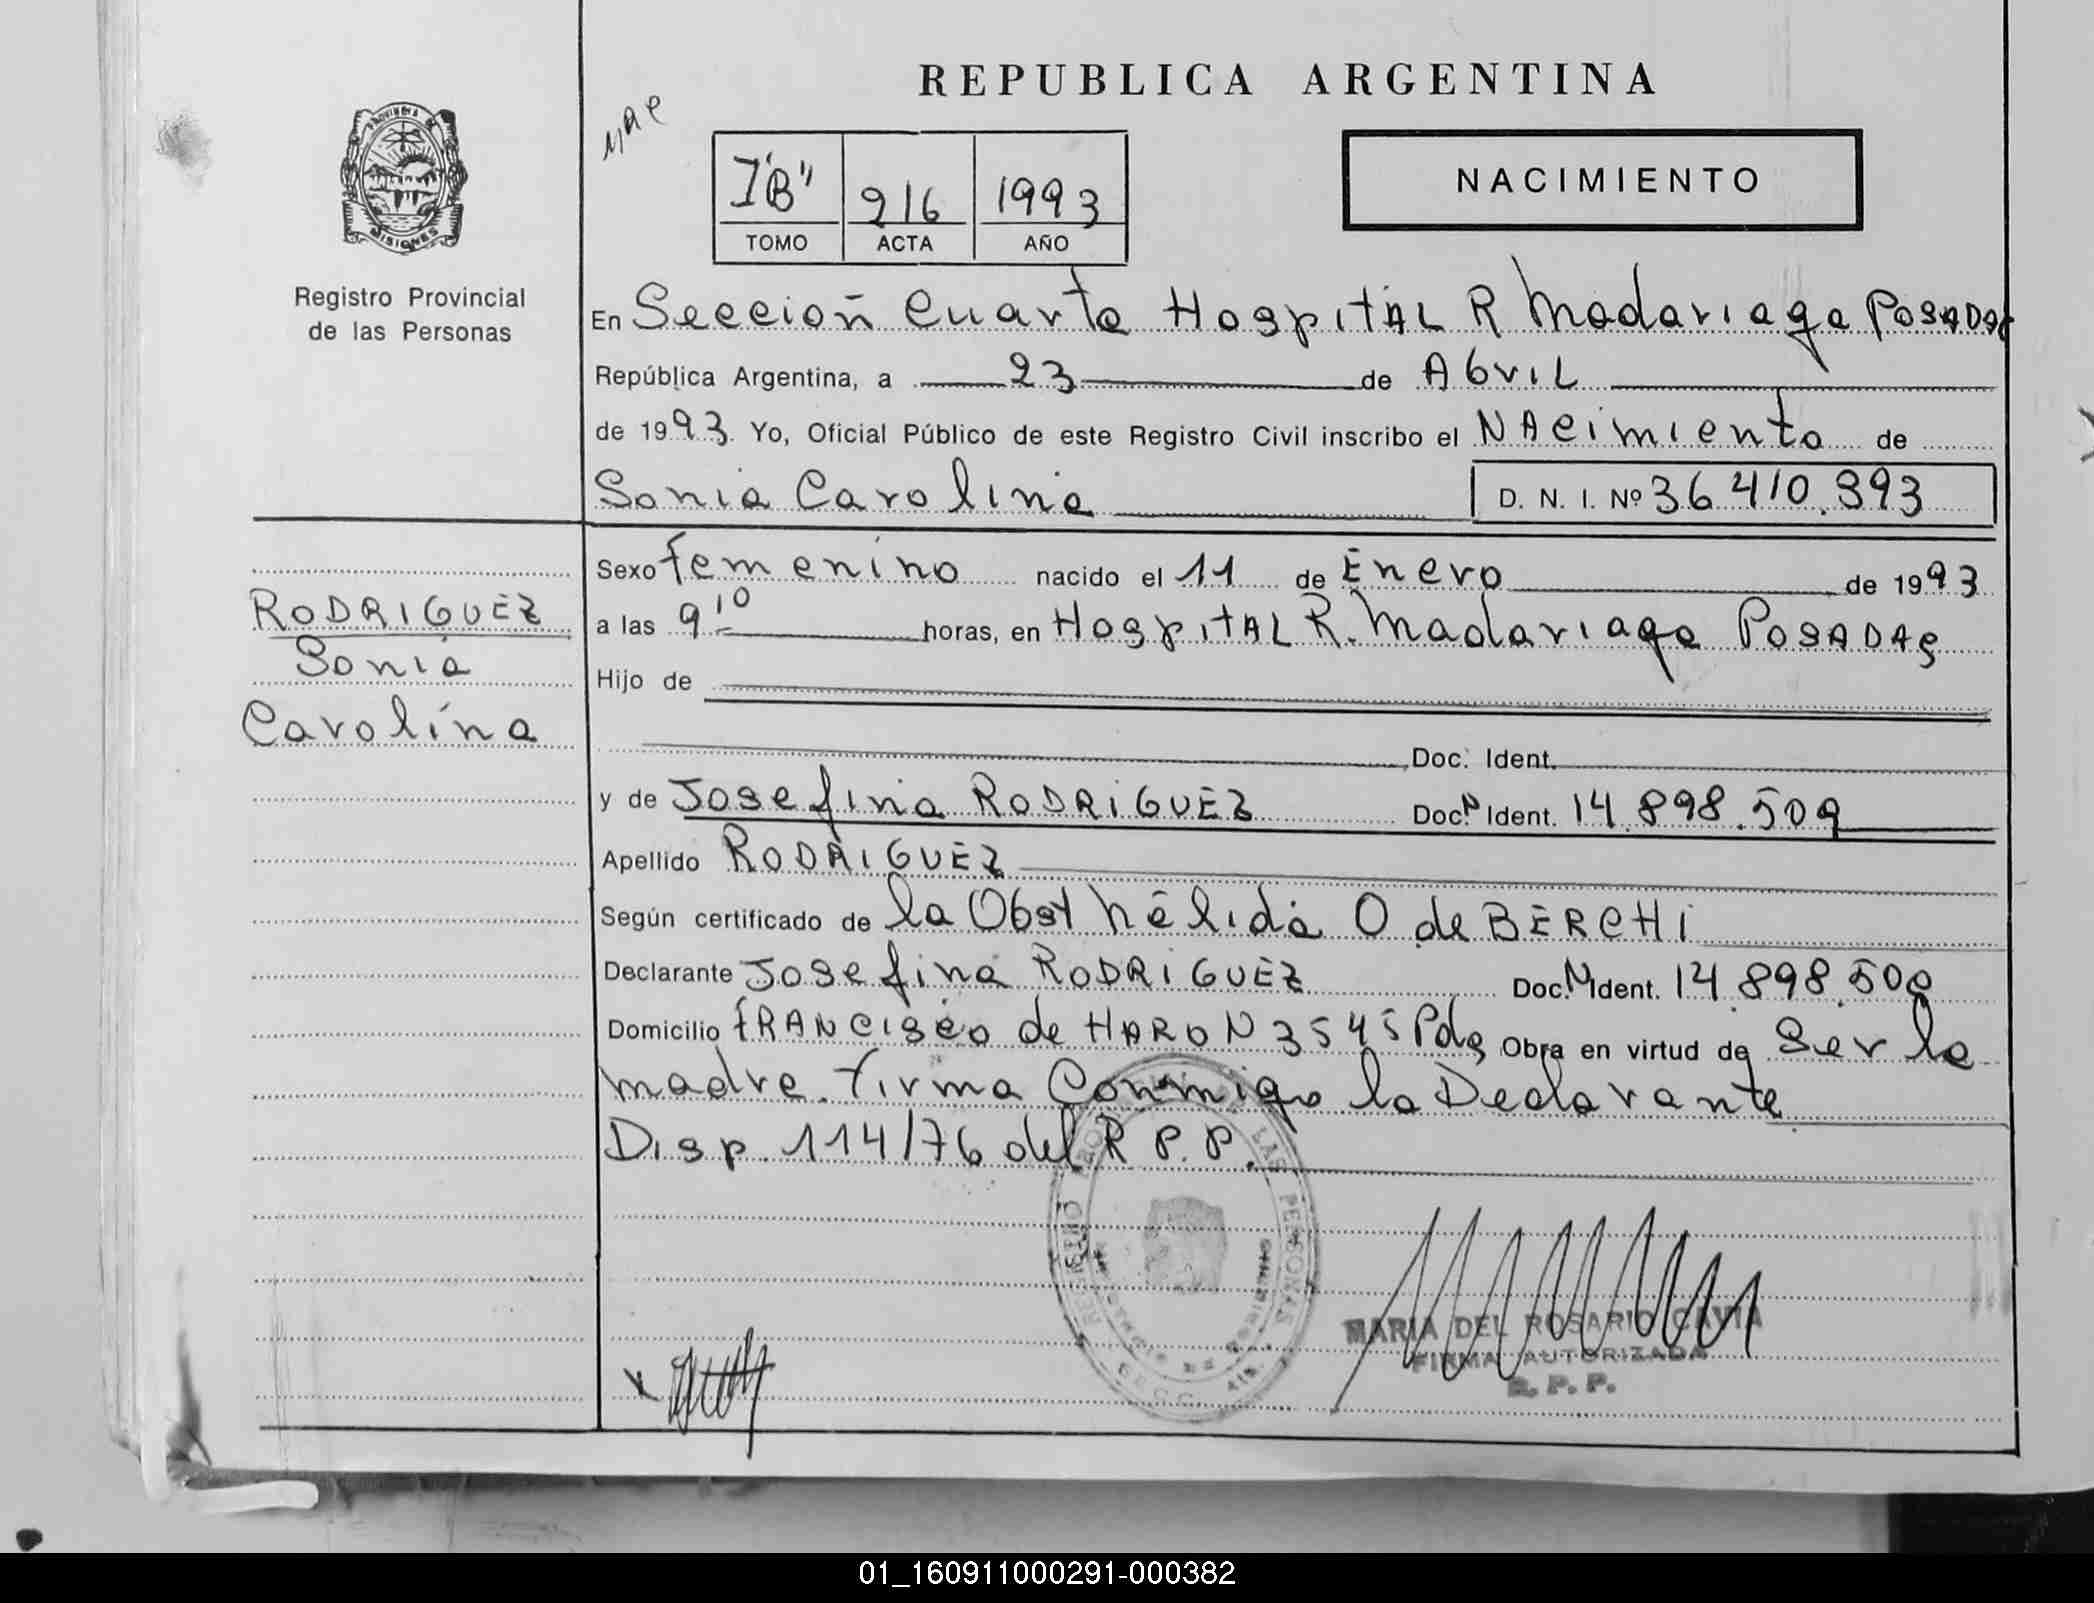 REPUBLICA ARGENTINA
I "B" 216 1993
TOMO ACTA AÑO
NACIMIENTO
MISIONES
Registro Provincial
de las Personas
En Sección Cuarta Hospital R Madariaga Posadas
República Argentina, a 23 de Abril
de 1993. Yo, Oficial Público de este Registro Civil inscribo el Nacimiento de
Sonia Carolina D. N. I. Nº 36.410.393
Sexo femenino nacido el 11 de Enero de 1993
RODRIGUEZ
a las 9 10 horas, en Hospital R. Madariaga Posadas
Sonia
Hijo de
Carolina
Doc. Ident.
y de Josefina RODRIGUEZ Doc. Ident. 14.898.509
Apellido RODRIGUEZ
Según certificado de la Obst Nélida O de BERCHI
Declarante Josefina RODRIGUEZ Doc. N Ident. 14.898.509
Domicilio Francisco de HARO N 3545 Pdas Obra en virtud de Ser la
madre. Firma Conmigo la Declarante
Disp. 114/76 del R.P.P.
MARIA DEL ROSARIO CAVIA
FIRMA AUTORIZADA
R. P. P.
01_160911000291-000382